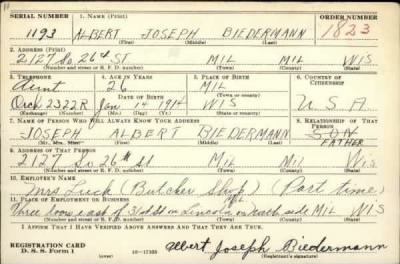 SERIAL NUMBER 1. NAME (Print) ORDER NUMBER
1193 ALBERT JOSEPH BIEDERMANN 1823
(First) (Middle) (Last)
2. ADDRESS (Print)
2127 So. 26th ST MIL MIL WIS
(Number and street or R. F. D. number) (Town) (County) (State)
3. TELEPHONE 4. AGE IN YEARS 5. PLACE OF BIRTH 6. COUNTRY OF CITIZENSHIP
Aunt 26 MIL
DATE OF BIRTH (Town or county)
Orch 2322R Jan 14 1914 WIS U.S.A.
(Exchange) (Number) (Mo.) (Day) (Yr.) (State or country)
7. NAME OF PERSON WHO WILL ALWAYS KNOW YOUR ADDRESS 8. RELATIONSHIP OF THAT PERSON
JOSEPH ALBERT BIEDERMANN SON
(Mr., Mrs., Miss) (First) (Middle) (Last) FATHER
9. ADDRESS OF THAT PERSON
2127 So 26th St MIL MIL WIS
(Number and street or R. F. D. number) (Town) (County) (State)
10. EMPLOYER'S NAME
Mrs (Butcher Shop) (Part time)
11. PLACE OF EMPLOYMENT OR BUSINESS
Three doors east of 31st St on Lincoln on south side MIL WIS
(Number and street or R. F. D. number) (Town) (County) (State)
I AFFIRM THAT I HAVE VERIFIED ABOVE ANSWERS AND THAT THEY ARE TRUE.
REGISTRATION CARD
D. S. S. Form 1 Albert Joseph Biedermann
(over) (Registrant's signature)